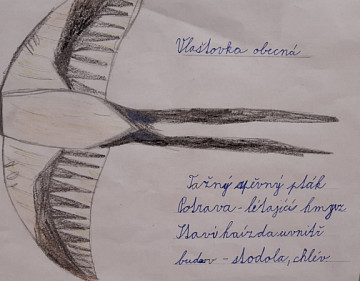 Vlaštovka obecná
Tažný zpěvný pták
Potrava - létající hmyz
Staví hnízda uvnitř
budov - stodola, chlév